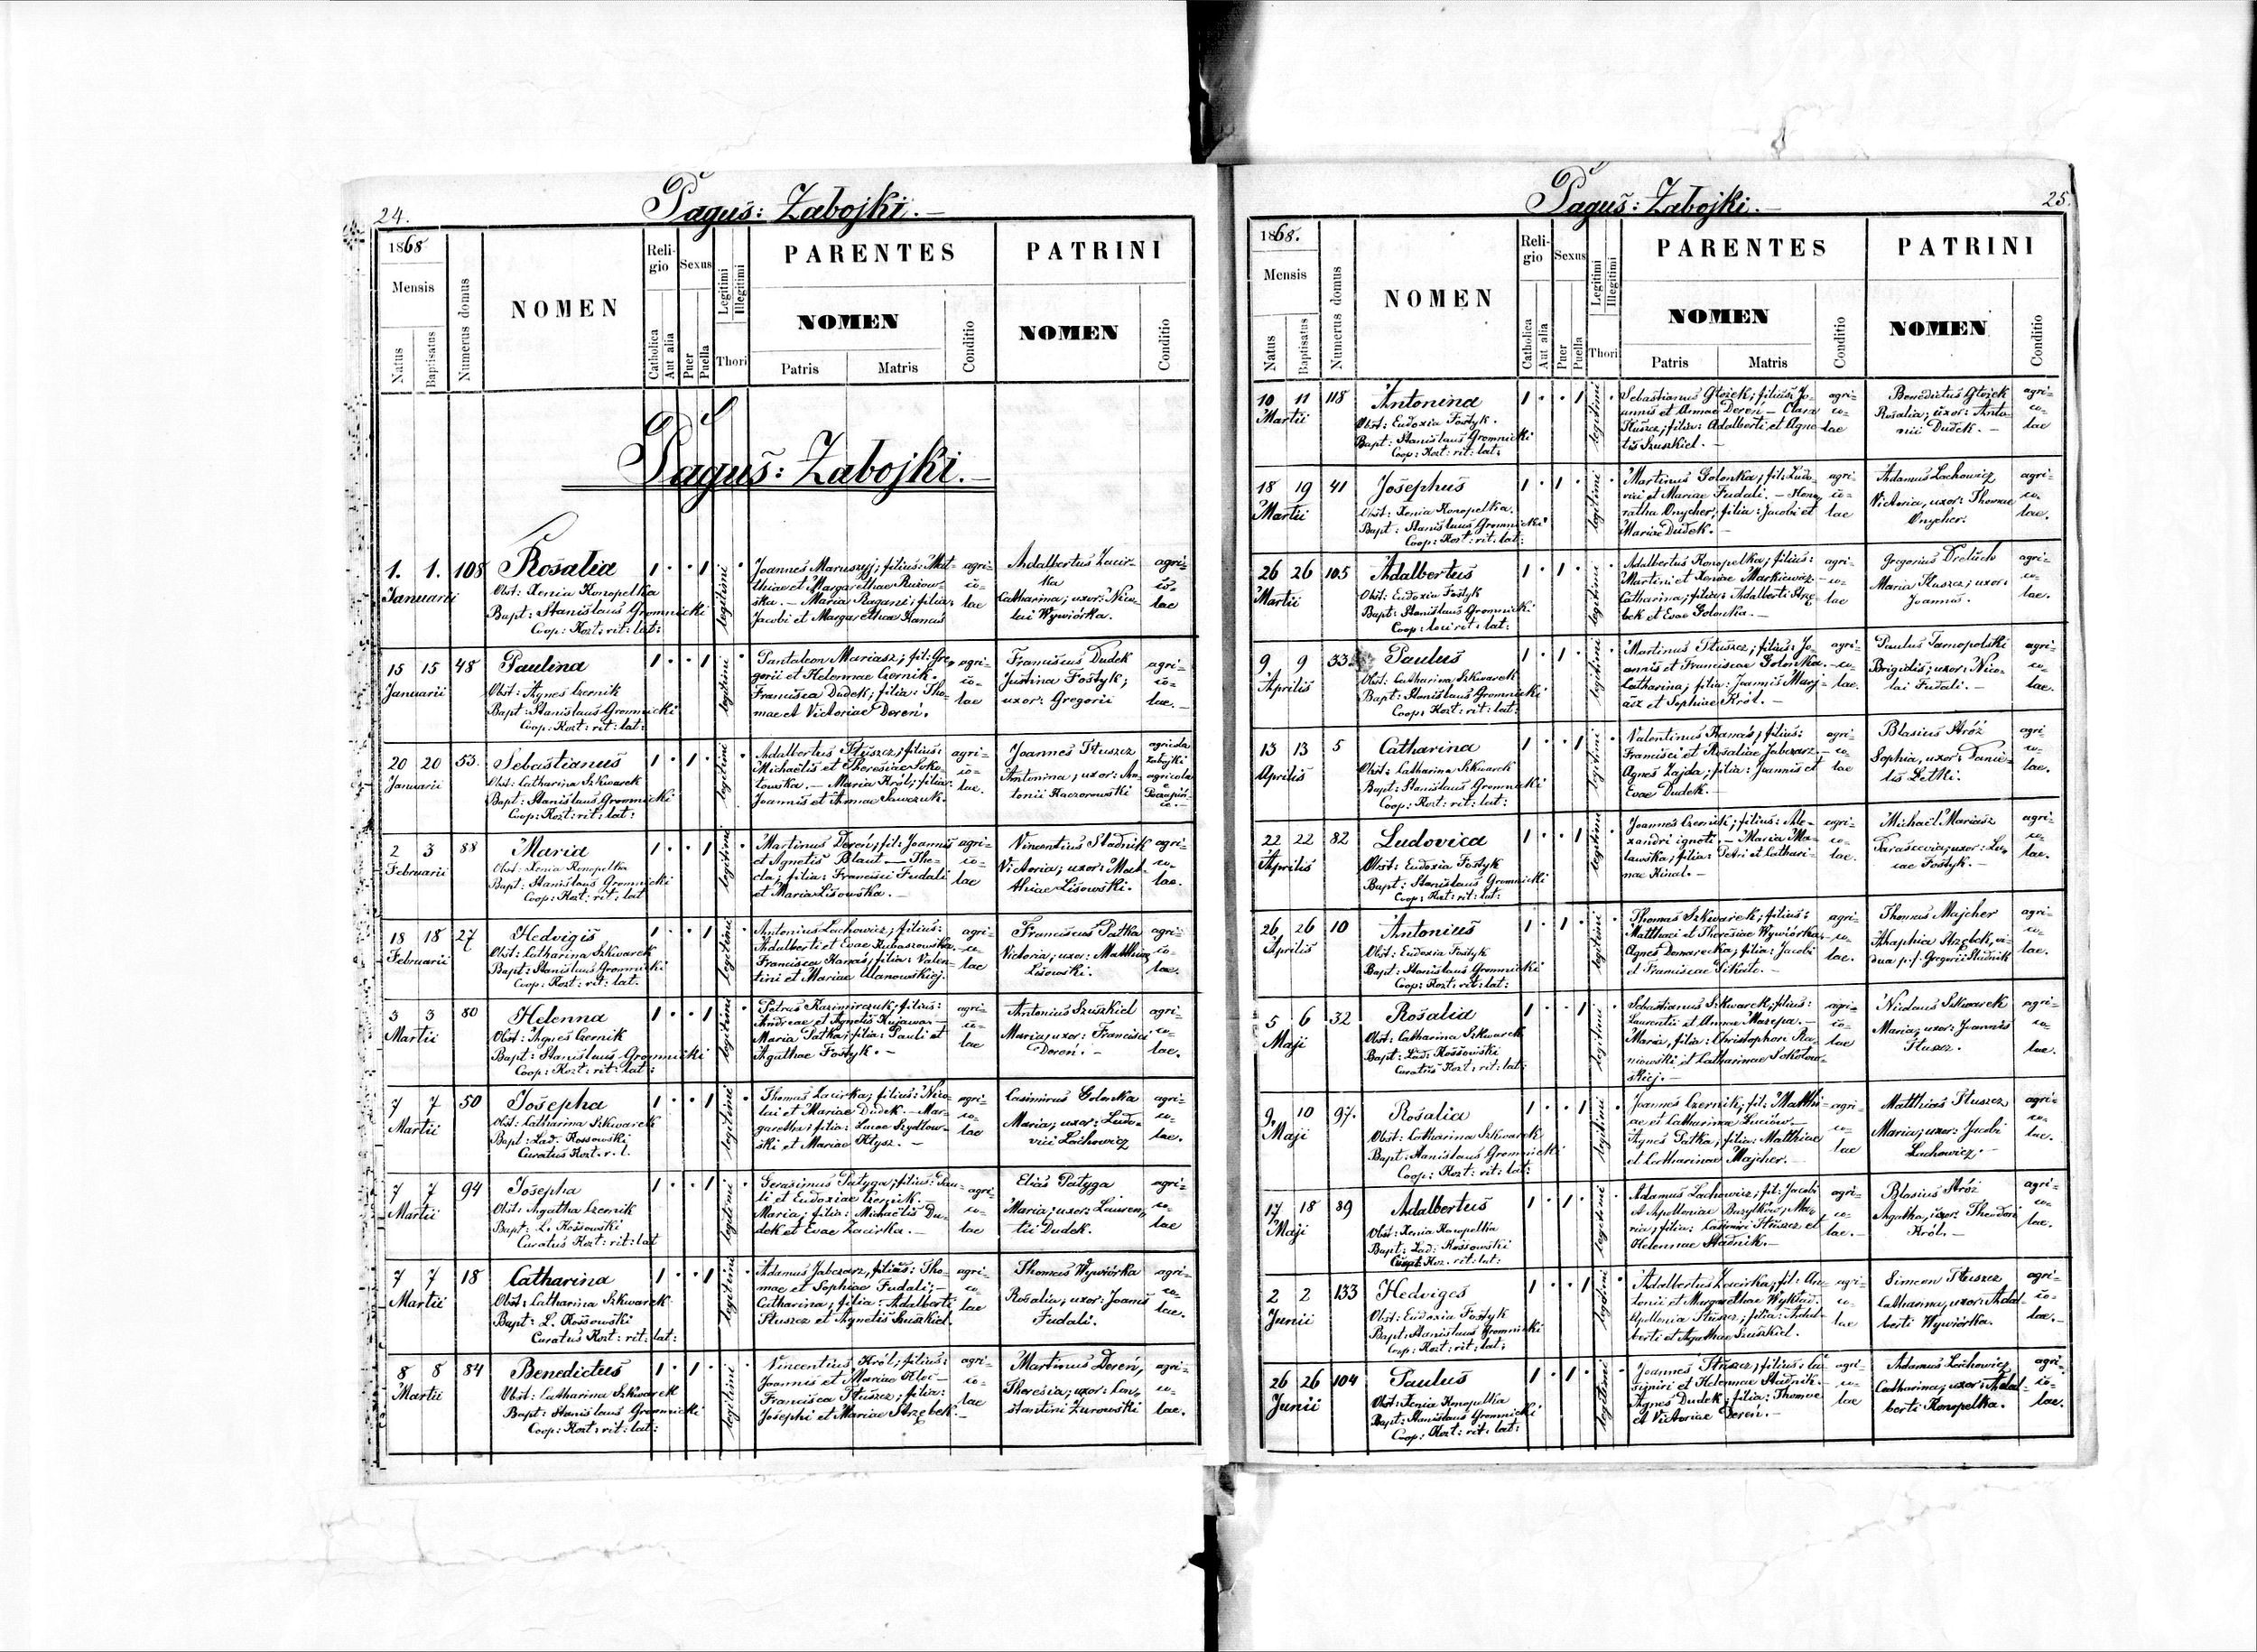 24.
Paguš: Zabojki.—
1868
Mensis
Natus
Baptisatus
Numerus domus
NOMEN
Religio
Catholica
Aut alia
Sexus
Puer
Puella
Legitimi
Illegitimi
Thori
PARENTES
NOMEN
Patris
Matris
Conditio
PATRINI
NOMEN
Conditio
Paguš: Zabojki.—
1. 1. 108 Rosalia
Januarii
Obst: Xenia Konopelka
Bapt: Stanislaus Gromnicki
Coop: Kozt: rit: lat:
legitimi
Joannes Maruszyj; filius: Mat-
thiae et Margarethae Rusow-
ska. — Maria Ragan; filia:
Jacobi et Margarethae Hanus
agri-
co-
lae
Adalbertus Zacir-
ka
Catharina; uxor: Nico-
lai Wywiórka.
agri-
co-
lae
15 15 48 Paulina
Januarii
Obst: Agnes Czernik
Bapt: Stanislaus Gromnicki
Coop: Kozt: rit: lat:
legitimi
Pantaleon Mariasz; fil: Gre-
gorii et Helennae Czernik.
Francisca Dudek; filia: Tho-
mae et Victoriae Doreń.
agri-
co-
lae
Franciscus Dudek
Justina Fostyk;
uxor: Gregorii
agri-
co-
lae.—
20 20 53. Sebastianus
Januarii
Obst: Catharina Szkwarek
Bapt: Stanislaus Gromnicki
Coop: Kozt: rit: lat:
legitimi
Adalbertus Tłuszcz; filius:
Michaëlis et Theresiae Soko-
lowska. — Maria Król; filia:
Joannis et Annae Sawczuk.
agri-
co-
lae.
Joannes Tłuszcz
Antonina; uxor: An-
tonii Kaczorowski
agricola
Zabojki
agricola
2 3 88 Maria
Februarii
Obst: Xenia Konopelka
Bapt: Stanislaus Gromnicki
Coop: Kozt: rit: lat
legitimi
Martinus Doreń; fil: Joannis
et Agnetis Blaut — The-
cla; filia: Francisci Fudali
et Maria Lisowska. —
agri-
co-
lae
Vincentius Stadnik
Victoria; uxor: Mat-
thiae Lisowski.
agri-
co-
lae.
18 18 27 Hedvigis
Februarii
Obst: Catharina Szkwarek
Bapt: Stanislaus Gromnicki
Coop: Kozt: rit: lat.
legitimi
Antonius Lachowicz; filius:
Adalberti et Evae Kubaszowska.
Francisca Hanas; filia: Valen-
tini et Mariae Ulanowskiej.
agri-
co-
lae
Franciscus Patka
Victoria; uxor: Matthiae
Lisowski.
agri-
co-
lae.
3 3 80 Helenna
Martii
Obst: Agnes Czernik
Bapt: Stanislaus Gromnicki
Coop: Kozt: rit: lat:
legitimi
Petrus Kazimirczuk; filius:
Andreae et Agnetis Kujawa —
Maria Patka; filia: Pauli et
Agathae Fostyk. —
agri-
co-
lae
Antonius Szuszkiel
Maria; uxor: Francisci
Doreń. —
agri-
co-
lae.
7 7 50 Josepha
Martii
Obst: Catharina Szkwarek
Bapt: Lad. Kossowski
Curatus Kozt. r. l.
legitimi
Thomas Zacirka; filius: Nico-
lai et Mariae Dudek. — Mar-
garetha; filia: Lucae Szydłow-
ski et Mariae Kłysz. —
agri-
co-
lae
Casimirus Golonka
Maria; uxor: Ludo-
vici Lachowicz
agri-
co-
lae.
7 7 94 Josepha
Martii
Obst: Agatha Czernik
Bapt: L. Kossowski
Curatus Kozt: rit: lat
legitimi
Gerasimus Patyga; filius: Pau-
li et Eudoxiae Czernik. —
Maria; filia: Michaëlis Du-
dek et Evae Zacirka. —
agri-
co-
lae
Elias Patyga
Maria; uxor: Lauren-
tii Dudek.
agri-
co-
lae
7 7 18 Catharina
Martii
Obst: Catharina Szkwarek
Bapt: L. Kossowski
Curatus Kozt: rit: lat:
legitimi
Adamus Jabczarz, filius: Tho-
mae et Sophiae Fudali; —
Catharina; filia: Adalberti
Tłuszcz et Agnetis Suszkiel.
agri-
co-
lae
Thomas Wywiórka
Rosalia; uxor: Joanis
Fudali.
agri-
co-
lae.
8 8 84 Benedictus
Martii
Obst: Catharina Szkwarek
Bapt: Stanislaus Gromnicki
Coop: Kozt: rit: lat:
legitimi
Vincentius Król; filius:
Joannis et Mariae Kloc —
Francisca Tłuszcz; filia:
Josephi et Mariae Strzębek.—
agri-
co-
lae
Martinus Doreń,
Theresia; uxor: Con-
stantini Żurowski
agri-
co-
lae.
Paguš: Zabojki.—
25.
1868.
Mensis
Natus
Baptisatus
Numerus domus
NOMEN
Religio
Catholica
Aut alia
Sexus
Puer
Puella
Legitimi
Illegitimi
Thori
PARENTES
NOMEN
Patris
Matris
Conditio
PATRINI
NOMEN
Conditio
10 11 118 Antonina
Martii
Obst: Eudoxia Fostyk.
Bapt: Stanislaus Gromnicki
Coop: Kozt: rit: lat:
legitimi
Sebastianus Głożek; filius: Jo-
annis et Annae Doreń — Clara
Tłuszcz; filia: Adalberti et Agne-
tis Szuszkiel. —
agri-
co-
lae
Benedictus Głożek
Rosalia; uxor: Anto-
nii Dudek. —
agri-
co-
lae
18 19 41 Josephus
Martii
Obst: Xenia Konopelka.
Bapt: Stanislaus Gromnicki
Coop: Kozt: rit: lat:
legitimi
Martinus Golonka; fil: Ludo-
vici et Mariae Fudali. — Hono-
ratha Onycher; filia: Jacobi et
Mariae Dudek. —
agri-
co-
lae
Adamus Lachowicz
Victoria, uxor: Thomae
Onycher.
agri-
co-
lae.
26 26 105 Adalbertus
Martii
Obst: Eudoxia Fostyk
Bapt: Stanislaus Gromnicki
Coop: loci rit: lat:
legitimi
Adalbertus Konopelka; filius:
Martini et Xeniae Markiewicz. —
Catharina; filia: Adalberti Strzę-
bek et Evae Golonka. —
agri-
co-
lae
Gregorius Dreluch
Maria Tłuszcz; uxor:
Joannis.
agri-
co-
lae.
9 9 33. Paulus
Aprilis
Obst: Catharina Szkwarek
Bapt: Stanislaus Gromnicki
Coop: Kozt: rit: lat:
legitimi
Martinus Tłuszcz; filius: Jo-
annis et Franciscae Golonka.
Catharina; filia: Joannis Mary-
asz et Sophiae Król. —
agri-
co-
lae.
Paulus Tarnopolski
Brigidis; uxor: Nico-
lai Fudali. —
agri-
co-
lae.
13 13 5 Catharina
Aprilis
Obst: Catharina Szkwarek
Bapt: Stanislaus Gromnicki
Coop: Kozt: rit: lat:
legitimi
Valentinus Hanas; filius:
Francisci et Rosaliae Jabczarz.
Agnes Zajda; filia: Joannis et
Evae Dudek. —
agri-
co-
lae
Blasius Stróż
Sophia, uxor: Danie-
lis Letki.
agri-
co-
lae.
22 22 82 Ludovica
Aprilis
Obst: Eudoxia Fostyk
Bapt: Stanislaus Gromnicki
Coop: Kozt: rit: lat:
legitimi
Joannes Czernik; filius: Ale-
xandri ignoti. — Maria Ma-
lawska; filia: Petri et Cathari-
nae Kinal. —
agri-
co-
lae.
Michaël Mariasz
Parascevia; uxor: Lu-
cae Fostyk. —
agri-
co-
lae.
26 26 10 Antonius
Aprilis
Obst: Eudoxia Fostyk
Bapt: Stanislaus Gromnicki
Coop: Kozt: rit: lat:
legitimi
Thomas Szkwarek; filius:
Matthaei et Theresiae Wywiórka.
Agnes Domarecka; filia: Jacobi
et Franciscae Sikoite. —
agri-
co-
lae.
Thomas Majcher
Ahaphia Strzębek, vi-
dua p. f. Gregorii Stadnik
agri-
co-
lae.
5 6 32 Rosalia
Maji
Obst: Catharina Szkwarek
Bapt: Lad: Kossowski
Curatus Kozt: rit: lat:
legitimi
Sebastianus Szkwarek; filius:
Laurentii et Annae Mazepa. —
Maria, filia: Christophori Ra-
niowski et Catharinae Sokołow-
skiej. —
agri-
co-
lae
Nicolaus Szkwarek
Maria; uxor: Joannis
Tłuszcz.
agri-
co-
lae.
9. 10 97. Rosalia
Maji
Obst: Catharina Szkwarek
Bapt: Stanislaus Gromnicki
Coop: Kozt: rit: lat:
legitimi
Joannes Czernik; fil: Matthi-
ae et Catharinae Luciów —
Agnes Patka; filia: Matthiae
et Catharinae Majcher. —
agri-
co-
lae
Matthias Tłuszcz
Maria; uxor: Jacobi
Lachowicz. —
agri-
co-
lae.
17 18 39 Adalbertus
Maji
Obst: Xenia Konopelka
Bapt: Lad: Kossowski
Curat: Koz. rit: lat:
legitimi
Adamus Lachowicz; fil: Jacobi
et Apolloniae Bazylków, Ma-
ria; filia: Casimiri Tłuszcz et
Helennae Stadnik. —
agri-
co-
lae. —
Blasius Stróż
Agatha, uxor: Theodori
Król. —
agri-
co-
lae.
2 2 133 Hedviges
Junii
Obst: Eudoxia Fostyk
Bapt: Stanislaus Gromnicki
Coop: Kozt: rit: lat:
legitimi
Adalbertus Zacirka; fil: An-
tonii et Margarethae Wykład.
Apollonia Tłuszcz; filia: Adal-
berti et Agathae Suszkiel.
agri-
co-
lae
Simeon Tłuszcz
Catharina, uxor: Adal-
berti Wywiórka.
agri-
co-
lae.—
26 26 104 Paulus
Junii
Obst: Xenia Konopelka
Bapt: Stanislaus Gromnicki
Coop: Kozt: rit: lat:
legitimi
Joannes Tłuszcz; filius: Ca-
simiri et Helennae Stadnik. —
Agnes Dudek; filia: Thomae
et Victoriae Doreń. —
agri-
co-
lae
Adamus Lachowicz
Catharina; uxor: Adal-
berti Konopelka.
agri-
co-
lae.